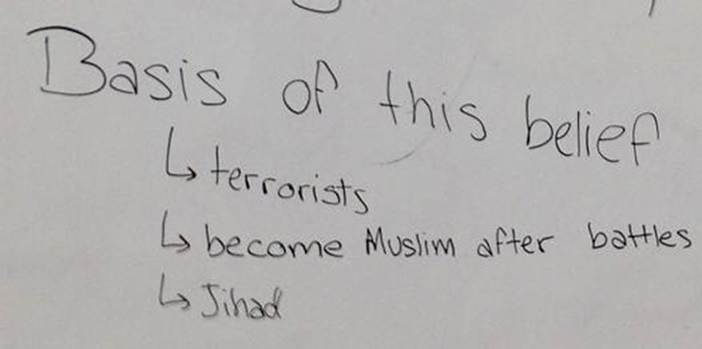 Basis of this belief
↳ terrorists
↳ become Muslim after battles
↳ Jihad